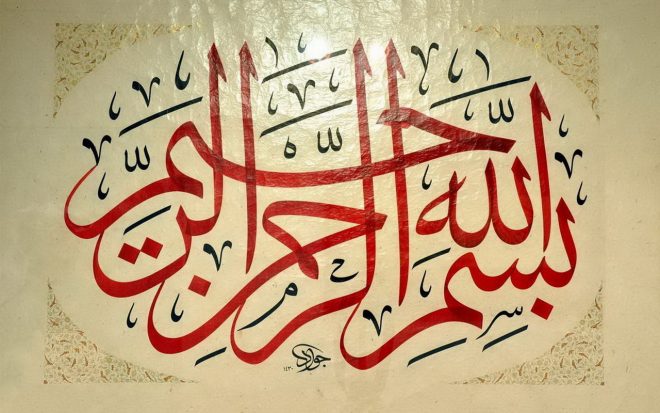 بِسْمِ اللّٰهِ الرَّحْمٰنِ الرَّحِيْمِ
جواد
١٤٣٠